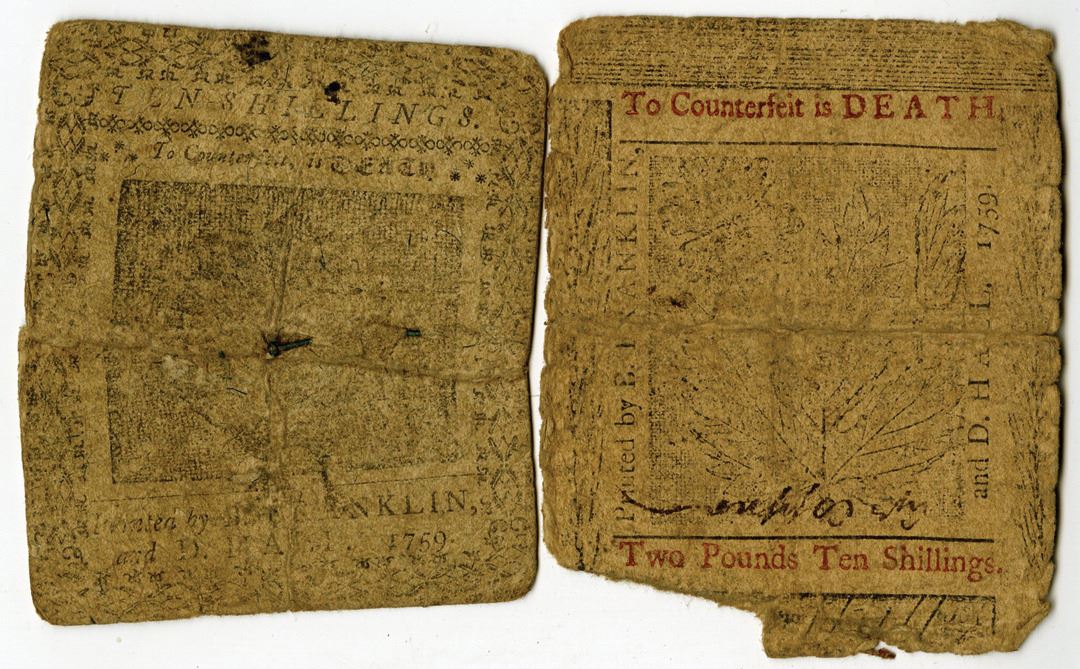 TEN SHILLINGS.
To Counterfeit, is DEATH.
Printed by B. FRANKLIN,
and D. HALL. 1759.
To Counterfeit is DEATH.
Printed by B. FRANKLIN,
and D. HALL, 1759
Two Pounds Ten Shillings.